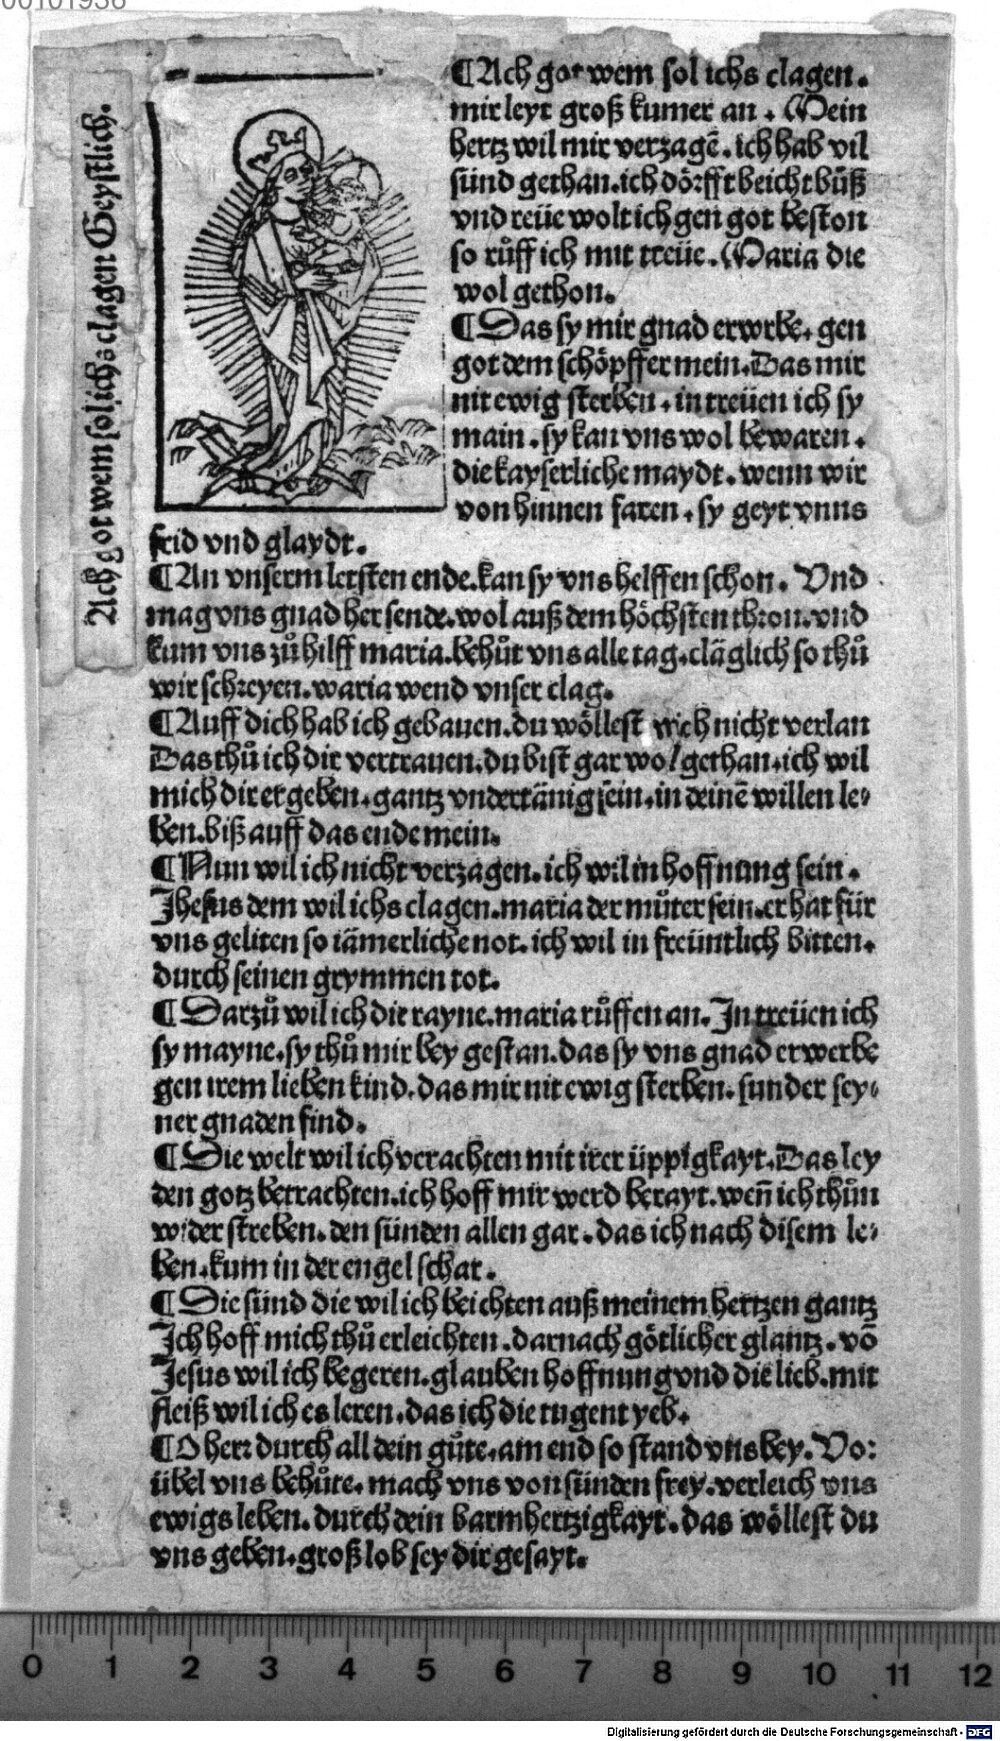 00101936
Ach got wem sol ichs clagen Geystlich.
¶Ach got wem sol ichs clagen.
mir leyt groß kumer an. Mein
hertz wil mir verzagē. ich hab vil
sünd gethan. ich dörfft beicht bůß
vnd reüe wolt ich gen got beston
so růff ich mit treüe. Maria die
wol gethon.
¶Das sy mir gnad erwrbe. gen
got dem schöpffer mein. Das mir
nit ewig sterben. in treüen ich sy
main. sy kan vns wol bewaren.
die kayserliche maydt. wenn wir
von hinnen faren. sy geyt vnns
frid vnd glaydt.
¶An vnserm letsten ende. kan sy vns helffen schon. Vnd
mag vns gnad her sende. wol auß dem höchsten thron. vnd
kum vns zů hilff maria. behůt vns alle tag. cläglich so thů
wir schreyen. waria wend vnser clag.
¶Auff dich hab ich gebauen. du wöllest mich nicht verlan
Das thů ich dir vertrauen. du bist gar wol gethan. ich wil
mich dir ergeben. gantz vndertänig sein. in deinē willen le-
ben. biß auff das ende mein.
¶Nun wil ich nicht verzagen. ich wil in hoffnung sein.
Jhesus dem wil ichs clagen. maria der můter sein. er hat für
vns geliten so iämerliche not. ich wil in freüntlich bitten.
durch seinen grymmen tot.
¶Darzů wil ich die rayne. maria růffen an. In treüen ich
sy mayne. sy thů mir bey gestan. das sy vns gnad erwerbe
gen irem lieben kind. das mir nit ewig sterben. sunder sey-
ner gnaden find.
¶Die welt wil ich verachten mit irer üppigkayt. Das ley
den gotz betrachten. ich hoff mir werd berayt. weñ ich thůn
wider streben. den sünden allen gar. das ich nach disem le-
ben. kum in der engel schar.
¶Die sünd die wil ich beichten auß meinem hertzen gantz
Ich hoff mich thů erleichten. darnach götlicher glantz. vō
Jesus wil ich begeren. glauben hoffnung vnd die lieb. mit
fleiß wil ich es leren. das ich die tugent yeb.
¶O herr durch all dein gůte. am end so stand vns bey. Vor
übel vns behůte. mach vns von sünden frey. verleich vns
ewigs leben. durch dein barmhertzigkayt. das wöllest du
vns geben. groß lob sey dir gesayt.
0 1 2 3 4 5 6 7 8 9 10 11 12
Digitalisierung gefördert durch die Deutsche Forschungsgemeinschaft - DFG